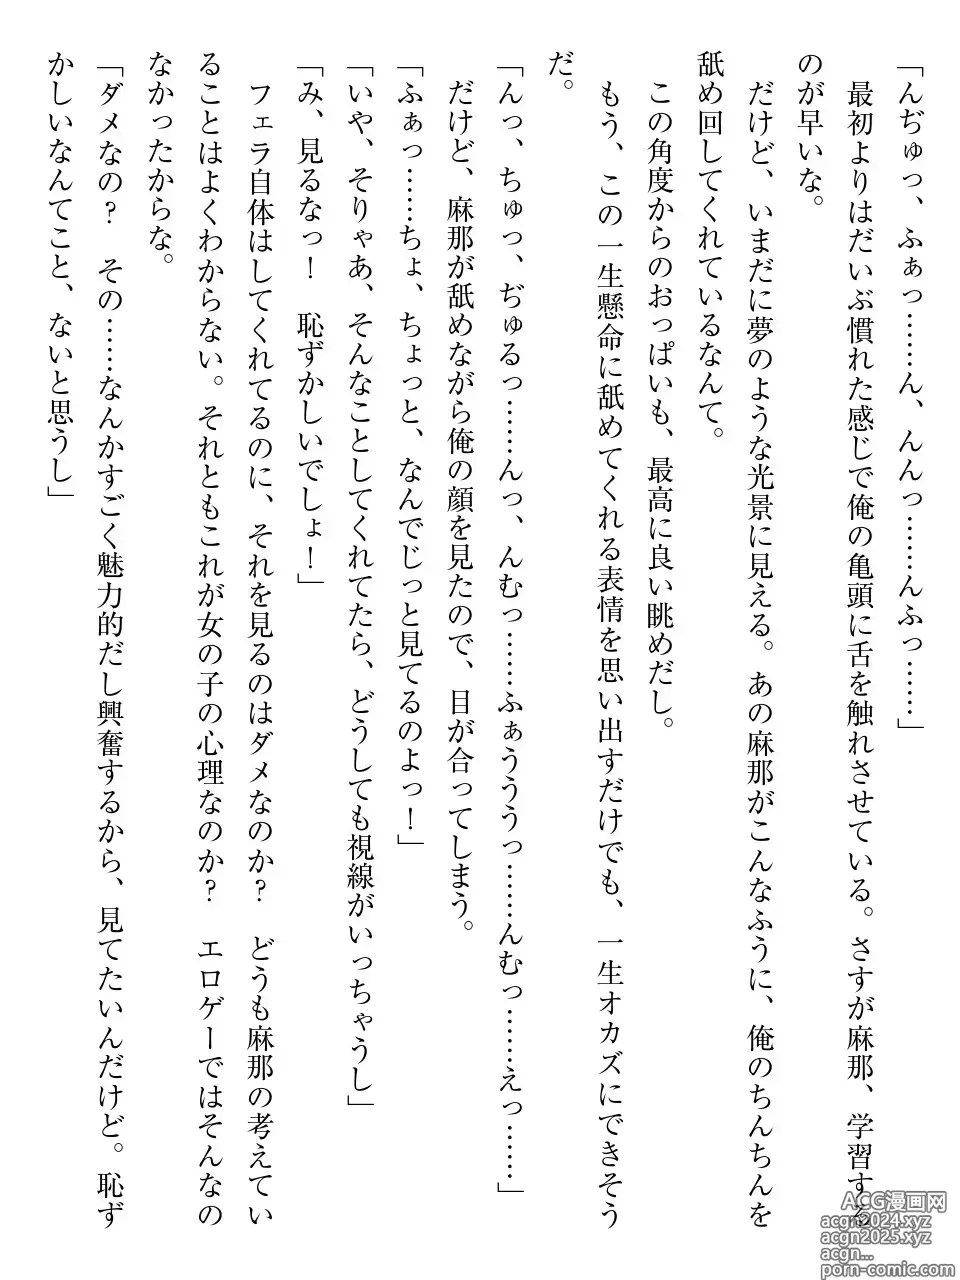 「んぢゅっ、ふぁっ……ん、んんっ……んふっ……」
最初よりはだいぶ慣れた感じで俺の亀頭に舌を触れさせている。さすが麻那、学習する
のが早いな。
だけど、いまだに夢のような光景に見える。あの麻那がこんなふうに、俺のちんちんを
舐め回してくれているなんて。
この角度からのおっぱいも、最高に良い眺めだし。
もう、この一生懸命に舐めてくれる表情を思い出すだけでも、一生オカズにできそう
だ。
「んっ、ちゅっ、ぢゅるっ……んっ、んむっ……ふぁうううっ……んむっ……えっ……」
だけど、麻那が舐めながら俺の顔を見たので、目が合ってしまう。
「ふぁっ……ちょ、ちょっと、なんでじっと見てるのよっ！」
「いや、そりゃあ、そんなことしてくれてたら、どうしても視線がいっちゃうし」
「み、見るなっ！　恥ずかしいでしょ！」
フェラ自体はしてくれてるのに、それを見るのはダメなのか？　どうも麻那の考えてい
ることはよくわからない。それともこれが女の子の心理なのか？　エロゲーではそんなの
なかったからな。
「ダメなの？　その……なんかすごく魅力的だし興奮するから、見てたいんだけど。恥ず
かしいなんてこと、ないと思うし」
ACG漫画网
acgn2024.xyz
acgn2025.xyz
acgn...
porn-comic.com